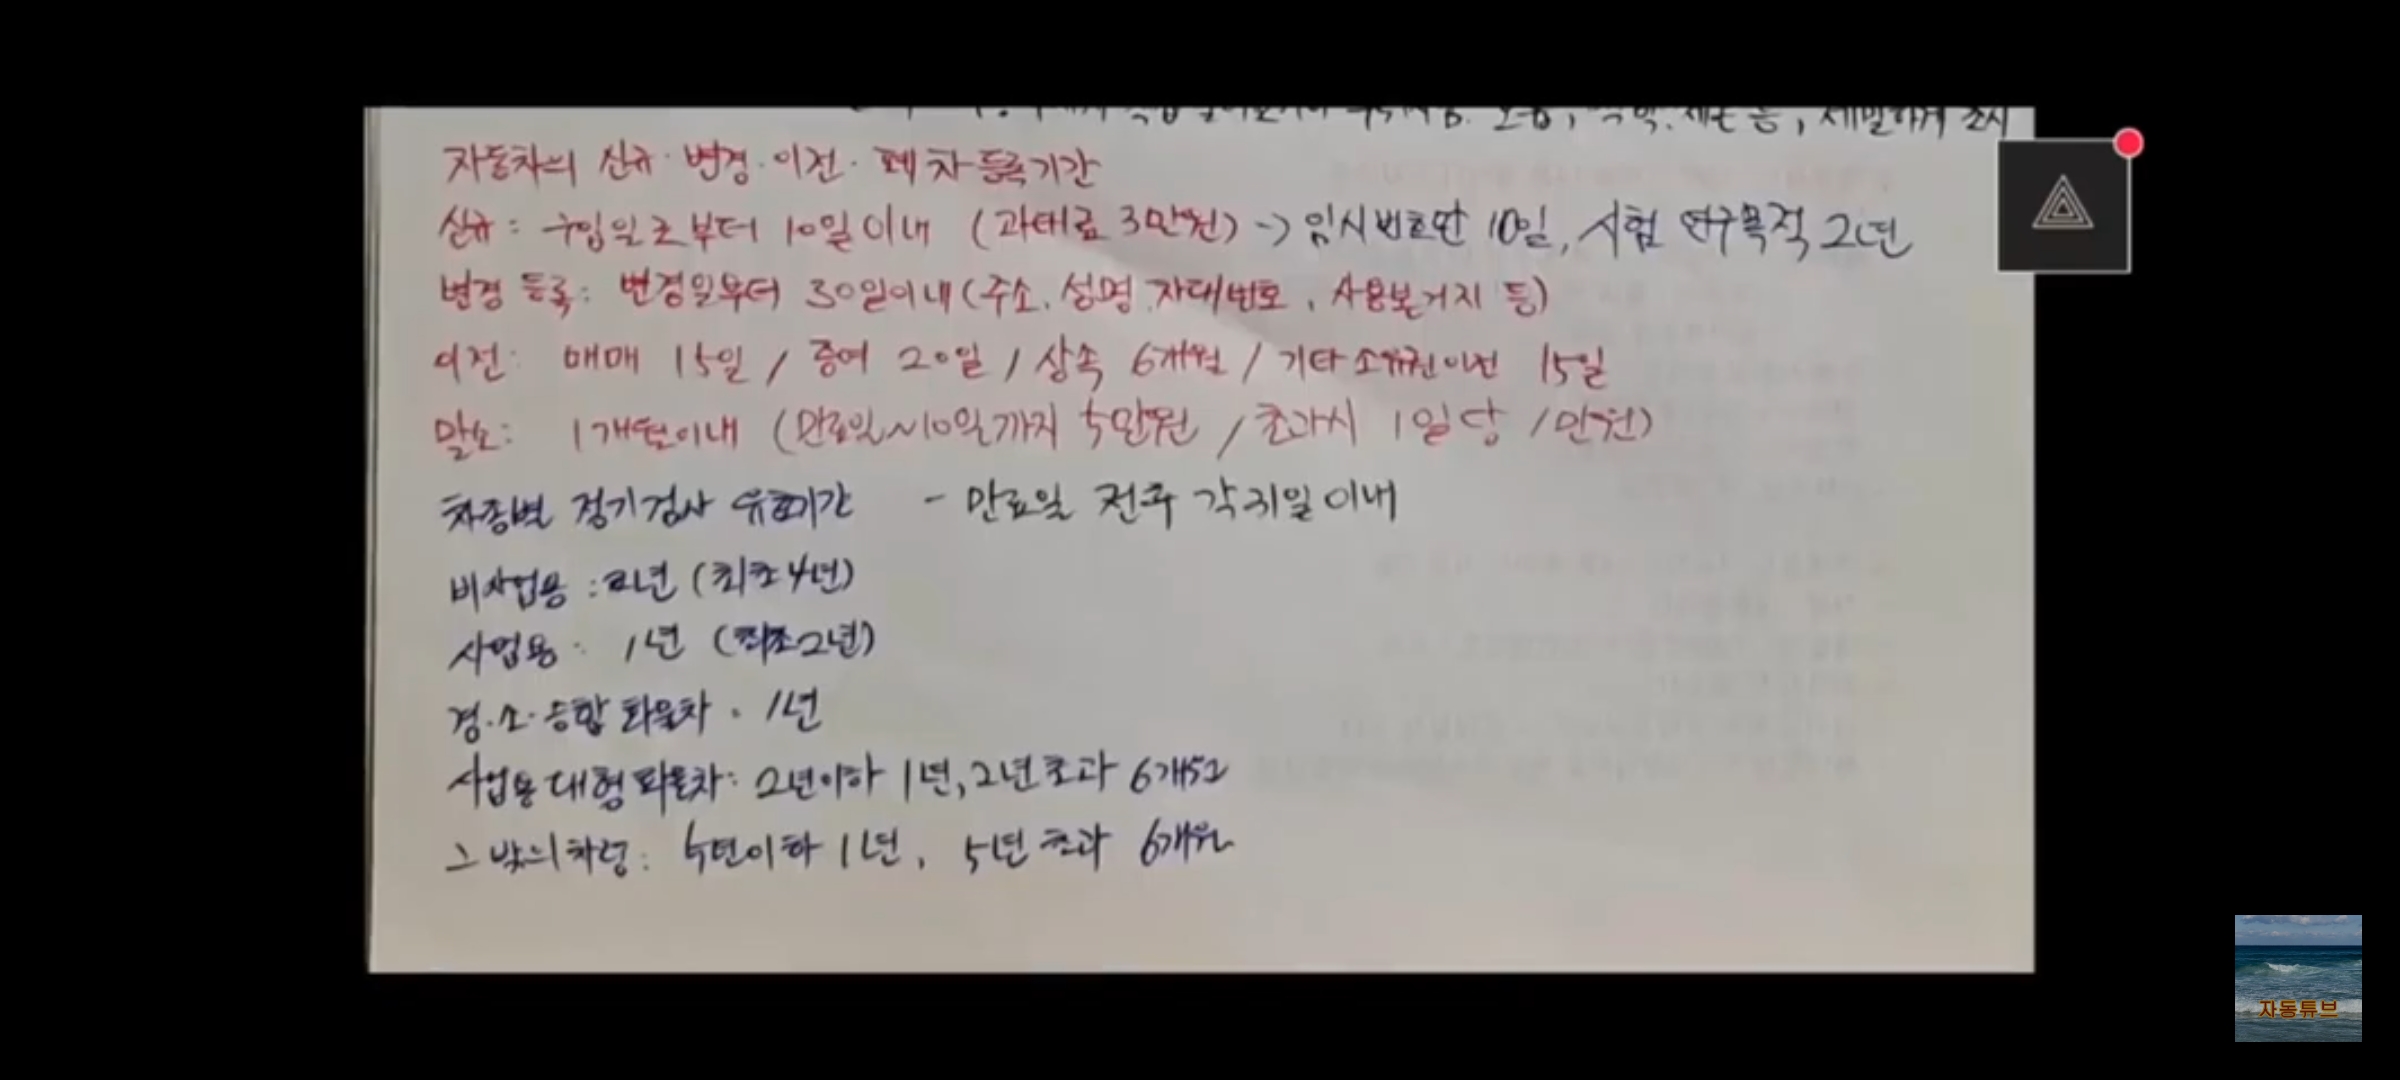 세밀하게 조사
자동차의 신규·변경·이전·폐차 등록기간
신규: 구입일로부터 10일이내 (과태료 3만원) -> 임시번호판 10일, 시험 연구목적 2년
변경 등록: 변경일부터 30일이내 (주소, 성명, 차대번호, 사용본거지 등)
이전: 매매 15일 / 증여 20일 / 상속 6개월 / 기타 소유권이전 15일
말소: 1개월이내 (만료일~10일까지 5만원 / 초과시 1일당 1만원)
차종별 정기검사 유효기간 - 만료일 전후 각 31일이내
비사업용: 2년 (최초4년)
사업용: 1년 (최초2년)
경·소·승합 화물차: 1년
사업용 대형화물차: 2년이하 1년, 2년초과 6개월
그 밖의차령: 5년이하 1년, 5년 초과 6개월
자동튜브